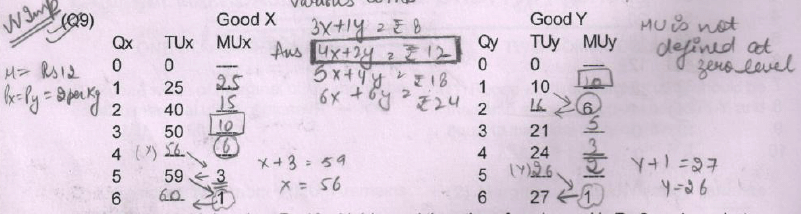 Various
N Imp (Q9) Good X Good Y
3x+1y = ₹ 8
Ans 4x+2y = ₹ 12
5x+4y = ₹ 18
6x+6y = ₹ 24
MU is not defined at zero level
M = Rs 12
Px = Py = 2 per kg
Qx TUx MUx Qy TUy MUy
0 0 — 0 0 —
1 25 25 1 10 10
2 40 15 2 16 6
3 50 10 3 21 5
4 (x) 56 6 4 24 3
5 59 3 5 (y) 26 2
6 60 1 6 27 1
x+3 = 59
x = 56
y+1 = 27
y = 26